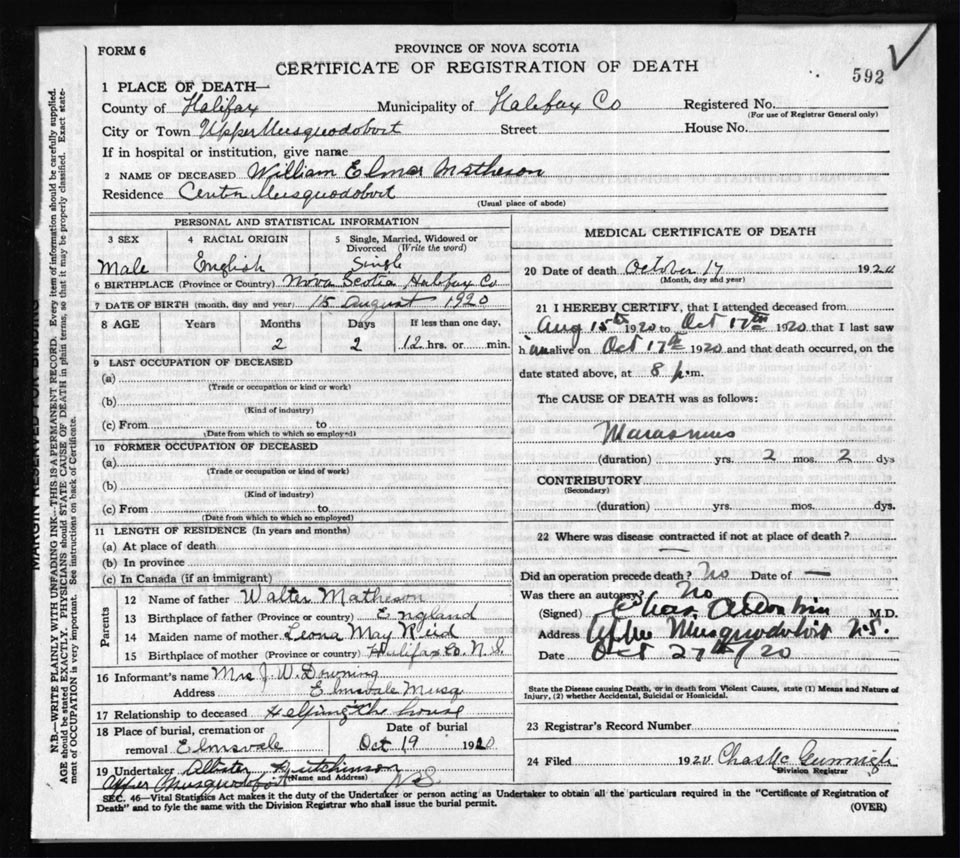 FORM 6
PROVINCE OF NOVA SCOTIA
CERTIFICATE OF REGISTRATION OF DEATH
592
1 PLACE OF DEATH—
County of Halifax Municipality of Halifax Co Registered No.
(For use of Registrar General only)
City or Town Upper Musquodoboit Street House No.
If in hospital or institution, give name
2 NAME OF DECEASED William Elmer Matheson
Residence Centre Musquodoboit
(Usual place of abode)
PERSONAL AND STATISTICAL INFORMATION
3 SEX 4 RACIAL ORIGIN 5 Single, Married, Widowed or Divorced (Write the word)
Male English Single
6 BIRTHPLACE (Province or Country) Nova Scotia, Halifax Co
7 DATE OF BIRTH (month, day and year) 15 August 1920
8 AGE Years Months Days If less than one day,
2 2 12 hrs. or min.
9 LAST OCCUPATION OF DECEASED
(a)
(Trade or occupation or kind or work)
(b)
(Kind of industry)
(c) From to
(Date from which to which so employed)
10 FORMER OCCUPATION OF DECEASED
(a)
(Trade or occupation or kind of work)
(b)
(Kind of industry)
(c) From to
(Date from which to which so employed)
11 LENGTH OF RESIDENCE (In years and months)
(a) At place of death
(b) In province
(c) In Canada (if an immigrant)
Parents
12 Name of father Walter Matheson
13 Birthplace of father (Province or country) England
14 Maiden name of mother Leona May Reid
15 Birthplace of mother (Province or country) Halifax Co. N.S.
16 Informant's name Mrs J. W. Downing
Address Elmsvale Musq
17 Relationship to deceased Helping the house
18 Place of burial, cremation or removal Elmsvale
Date of burial
Oct 19 1920
19 Undertaker Hutchinson
(Name and Address)
Upper Musquodoboit N.S.
MEDICAL CERTIFICATE OF DEATH
20 Date of death October 17 1920
(Month, day and year)
21 I HEREBY CERTIFY, that I attended deceased from
Aug 15th 1920 to Oct 17th 1920 that I last saw
h im alive on Oct 17th 1920 and that death occurred, on the
date stated above, at 8 p.m.
The CAUSE OF DEATH was as follows:
Marasmus
(duration) yrs. 2 mos. 2 dys
CONTRIBUTORY
(Secondary)
(duration) yrs. mos. dys.
22 Where was disease contracted if not at place of death?
—
Did an operation precede death? No Date of —
Was there an autopsy? No
(Signed) M.D.
Address Upper Musquodoboit N.S.
Date Oct 27th/20
State the Disease causing Death, or in death from Violent Causes, state (1) Means and Nature of
Injury, (2) whether Accidental, Suicidal or Homicidal.
23 Registrar's Record Number
24 Filed 1920
Division Registrar
SEC. 46—Vital Statistics Act makes it the duty of the Undertaker or person acting as Undertaker to obtain all the particulars required in the "Certificate of Registration of
Death" and to fyle the same with the Division Registrar who shall issue the burial permit.
(OVER)
MARGIN RESERVED FOR BINDING
N.B.—WRITE PLAINLY WITH UNFADING INK—THIS IS A PERMANENT RECORD. Every item of information should be carefully supplied.
AGE should be stated EXACTLY. PHYSICIANS should STATE CAUSE OF DEATH in plain terms, so that it may be properly classified. Exact state-
ment of OCCUPATION is very important. See instructions on back of Certificate.